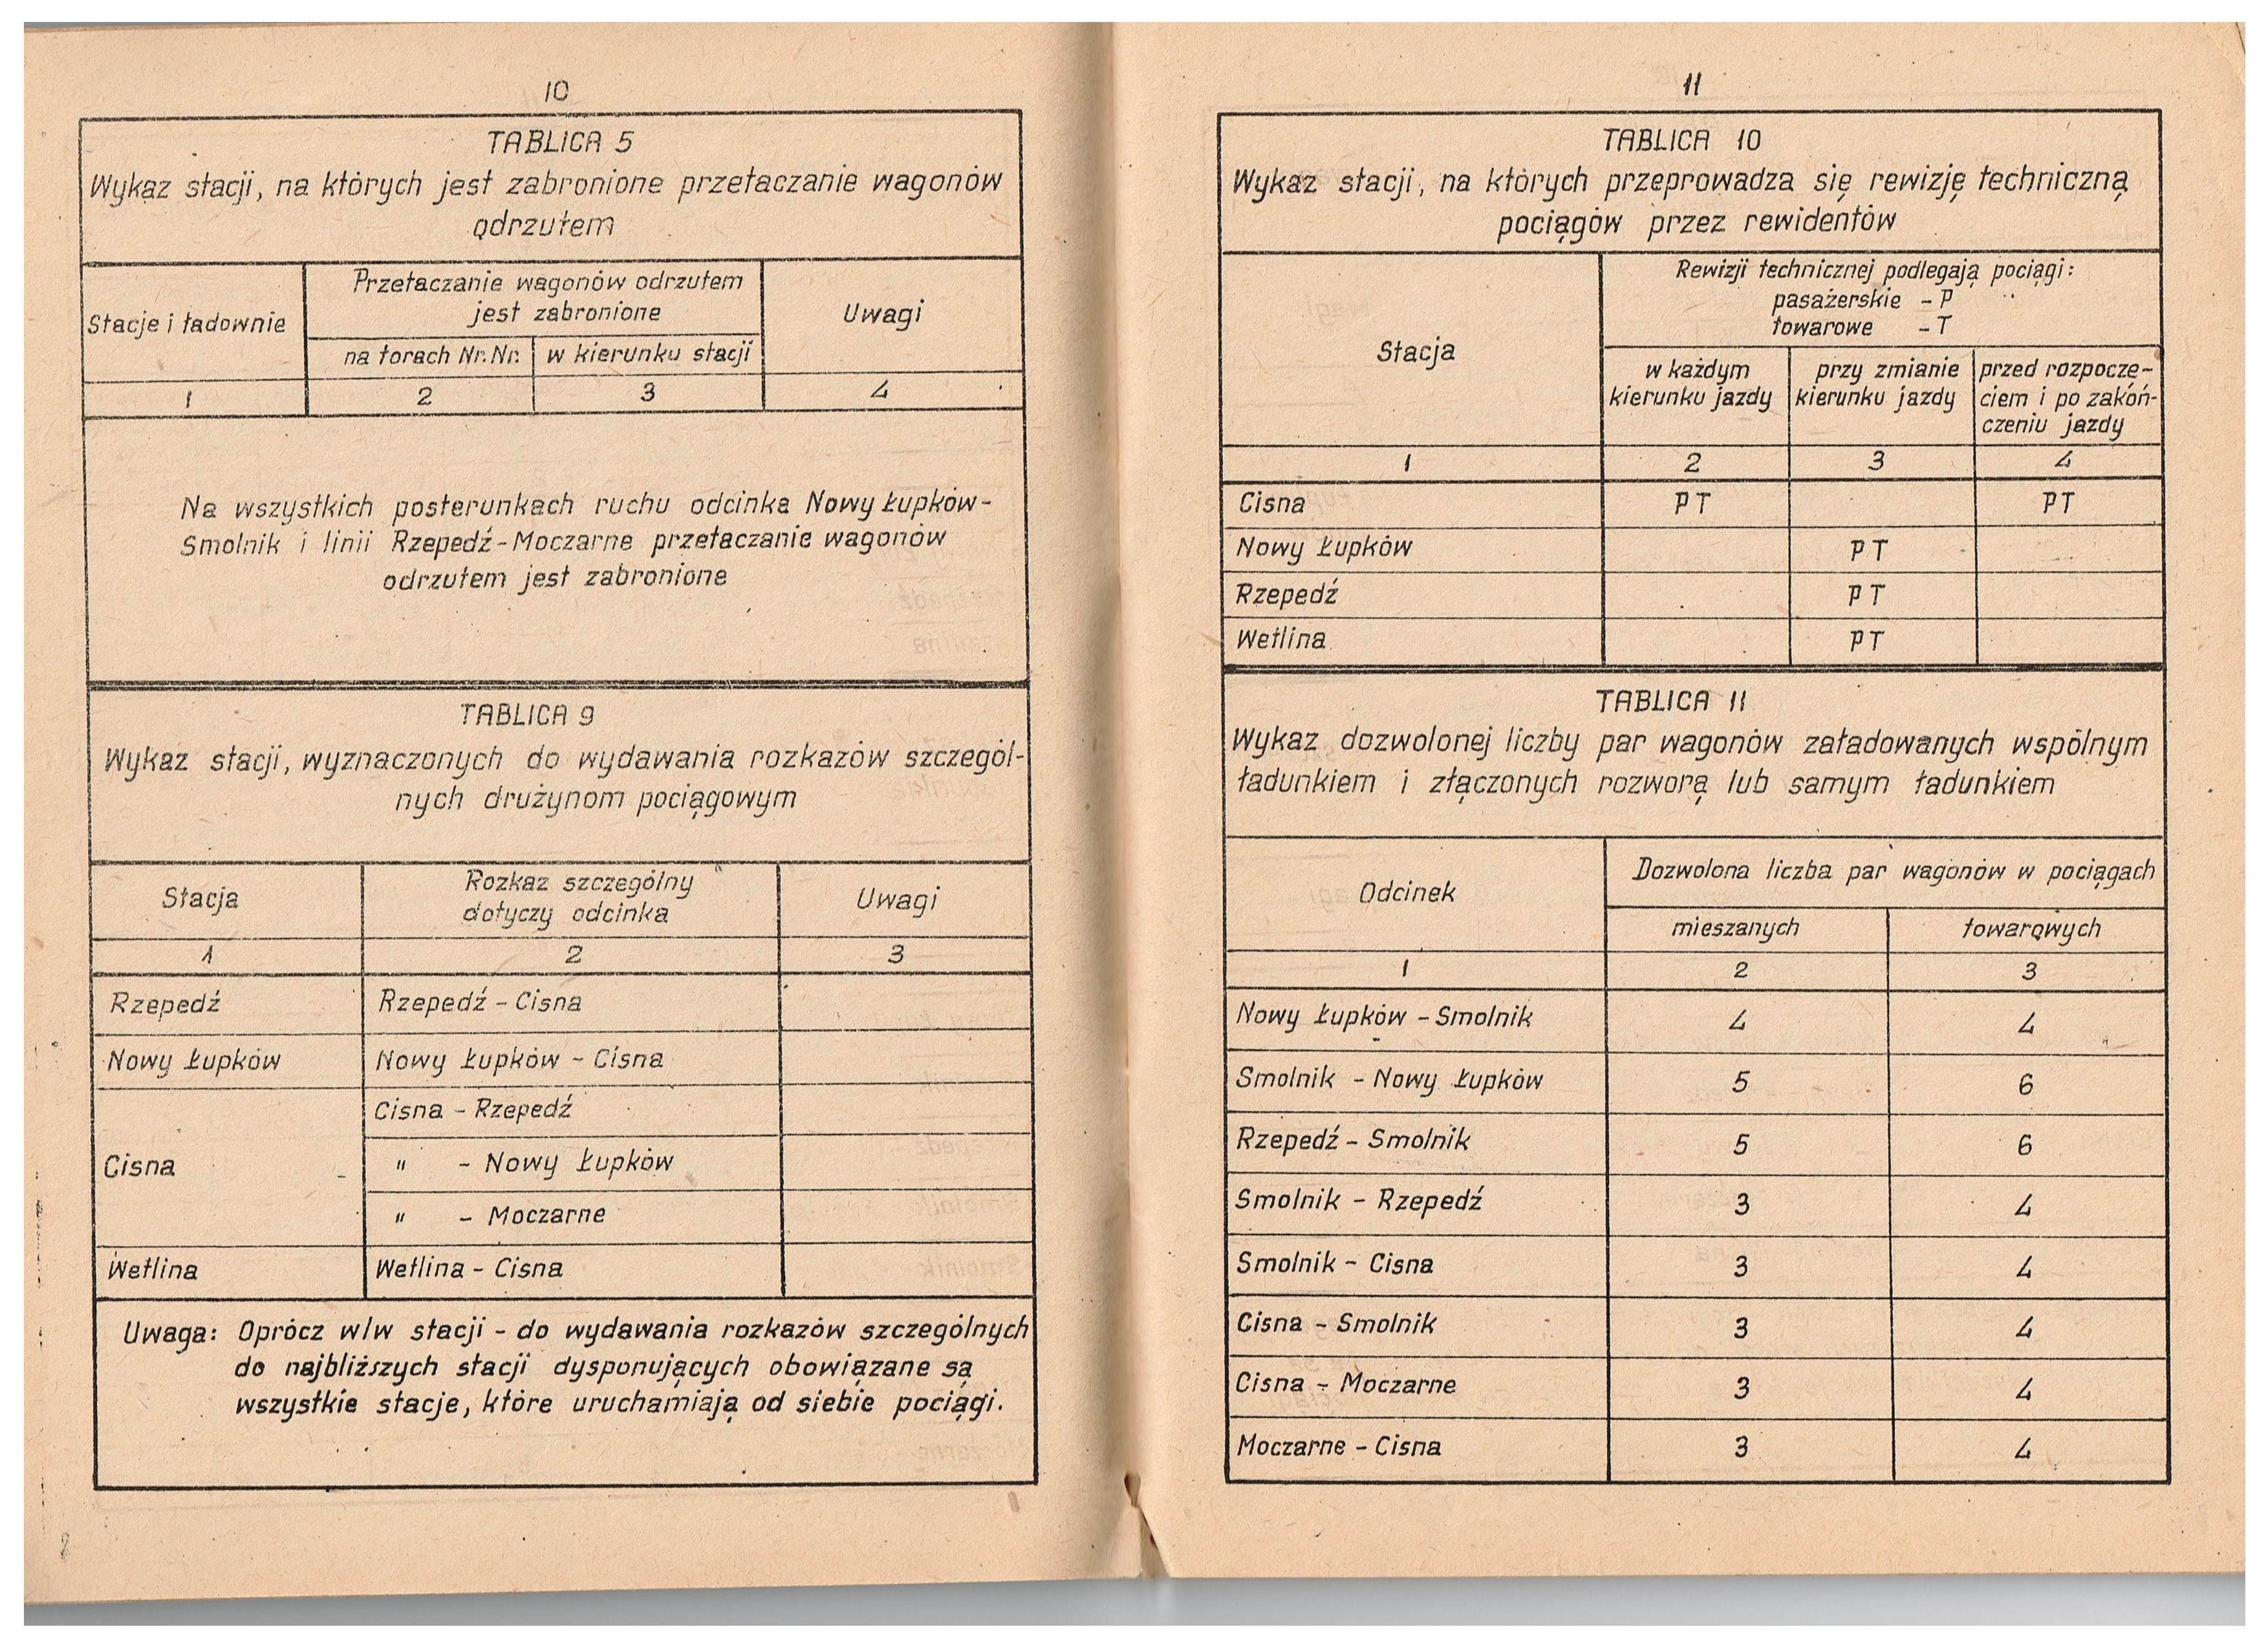 10
TABLICA 5
Wykaz stacji, na których jest zabronione przetaczanie wagonów
odrzutem
Stacje i ładownie
Przetaczanie wagonów odrzutem
jest zabronione
Uwagi
na torach Nr.Nr.
w kierunku stacji
1 2 3 4
Na wszystkich posterunkach ruchu odcinka Nowy Łupków-
Smolnik i linii Rzepedź-Moczarne przetaczanie wagonów
odrzutem jest zabronione
TABLICA 9
Wykaz stacji, wyznaczonych do wydawania rozkazów szczegól-
nych drużynom pociągowym
Stacja
Rozkaz szczególny
dotyczy odcinka
Uwagi
1 2 3
Rzepedź Rzepedź - Cisna
Nowy Łupków Nowy Łupków - Cisna
Cisna - Rzepedź
Cisna " - Nowy Łupków
" - Moczarne
Wetlina Wetlina - Cisna
Uwaga: Oprócz w/w stacji - do wydawania rozkazów szczególnych
do najbliższych stacji dysponujących obowiązane są
wszystkie stacje, które uruchamiają od siebie pociągi.
11
TABLICA 10
Wykaz stacji, na których przeprowadza się rewizję techniczną
pociągów przez rewidentów
Stacja
Rewizji technicznej podlegają pociągi:
pasażerskie - P
towarowe - T
w każdym
kierunku jazdy
przy zmianie
kierunku jazdy
przed rozpoczę-
ciem i po zakoń-
czeniu jazdy
1 2 3 4
Cisna PT PT
Nowy Łupków PT
Rzepedź PT
Wetlina PT
TABLICA 11
Wykaz dozwolonej liczby par wagonów załadowanych wspólnym
ładunkiem i złączonych rozworą lub samym ładunkiem
Odcinek
Dozwolona liczba par wagonów w pociągach
mieszanych
towarowych
1 2 3
Nowy Łupków - Smolnik 4 4
Smolnik - Nowy Łupków 5 6
Rzepedź - Smolnik 5 6
Smolnik - Rzepedź 3 4
Smolnik - Cisna 3 4
Cisna - Smolnik 3 4
Cisna - Moczarne 3 4
Moczarne - Cisna 3 4